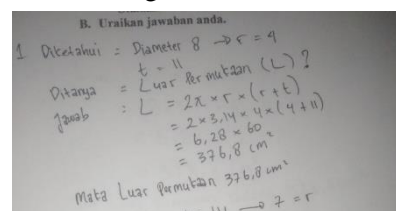 B. Uraikan jawaban anda.
1 Diketahui = Diameter 8 → r = 4
t = 11
Ditanya = Luas Permukaan (L) ?
Jawab : L = 2π × r × (r + t)
= 2 × 3,14 × 4 × (4 + 11)
= 6,28 × 60
= 376,8 cm²
Maka Luas Permukaan 376,8 cm²
→ 7 = r